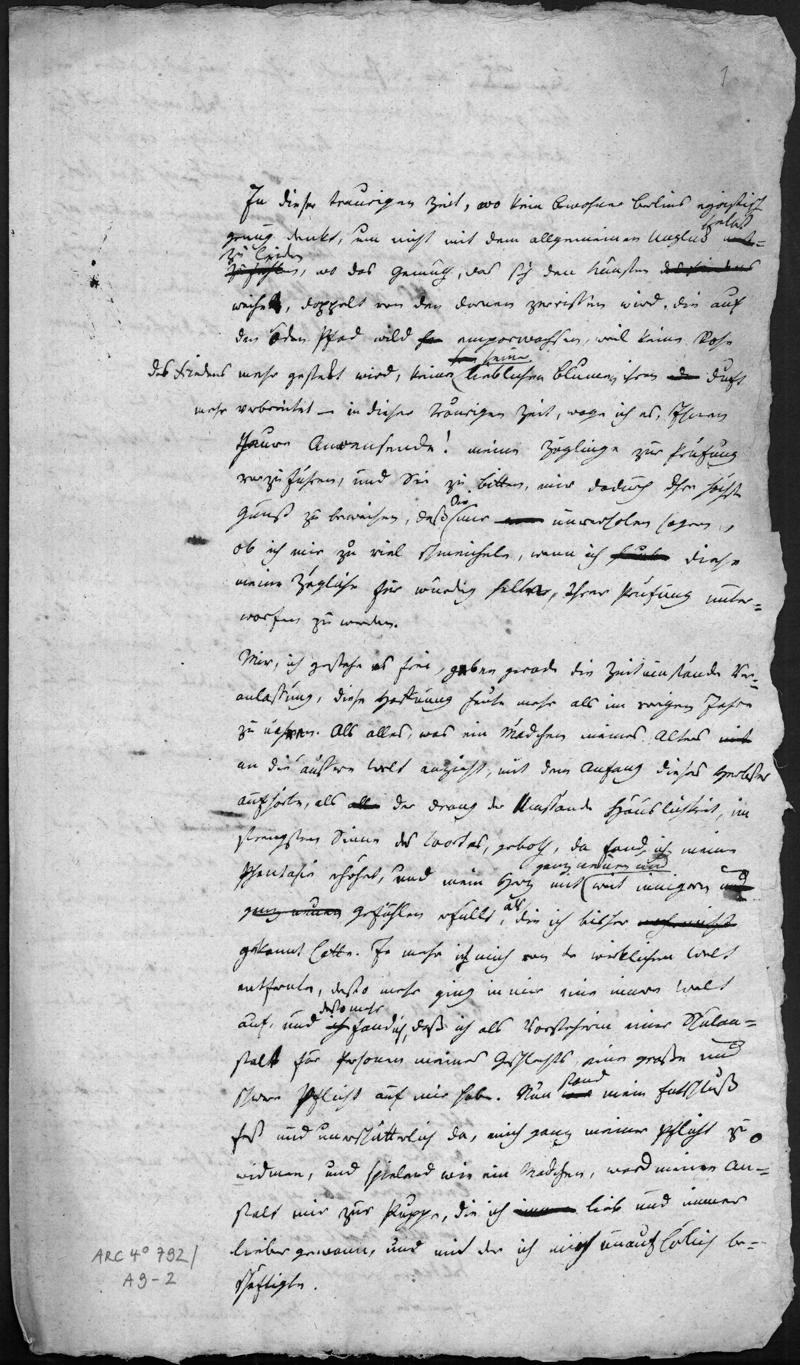 1
In dieser traurigen Zeit, wo kein Bewohner Berlins egoistisch
genug denkt, um nicht mit dem allgemeinen Unglück
zu leiden, wo das Gemüth, das sich den Künsten
weihet, doppelt von den Dornen zerrissen wird, die auf
den öden Pfad wild emporwachsen, weil keine Rose
des Friedens mehr gepflegt wird, keine seine lieblichen Blumen ihren Duft
mehr verbreitet – in dieser traurigen Zeit, wage ich es, Ihnen
theure Anwesende! meine Zöglinge zur Prüfung
vorzuführen, und Sie zu bitten, mir dadurch Ihre höchste
Gunst zu beweisen, daß Sie mir unverholen sagen,
ob ich mir zu viel schmeichele, wenn ich diese
meine Zöglinge für würdig halte, Ihrer Prüfung unter-
worfen zu werden.
Mir, ich gestehe es frei, geben gerade die Zeitumstände Ver-
anlassung, diese Hoffnung heute mehr als im vorigen Jahre
zu nähren. Als alles, was ein Mädchen meines Alters
an die äußere Welt anzieht, mit dem Anfang dieses Herbstes
aufhörte, als der Drang der Umstände Häuslichkeit, im
strengsten Sinne des Wortes, geboth, da fand ich meine
Phantasie erhöhet, und mein Herz mit ganz neuen und weit innigern
Gefühlen erfüllt, als die ich bisher
gekannt hatte. Je mehr ich mich von der wirklichen Welt
entfernte, desto mehr ging in mir eine innere Welt
auf, und desto mehr fand ich, daß ich als Vorsteherin einer Schulan-
stalt für Personen meines Geschlechts eine große und
schwere Pflicht auf mir habe. Nun stand mein Entschluß
fest und unerschütterlich da, mich ganz meiner Pflicht zu
widmen, und spielend wie ein Mädchen, ward meine An-
stalt mir zur Puppe, die ich lieb und immer
lieber gewann, und mit der ich mich unaufhörlich be-
schäftigte.
ARC 4° 792/
A9-2